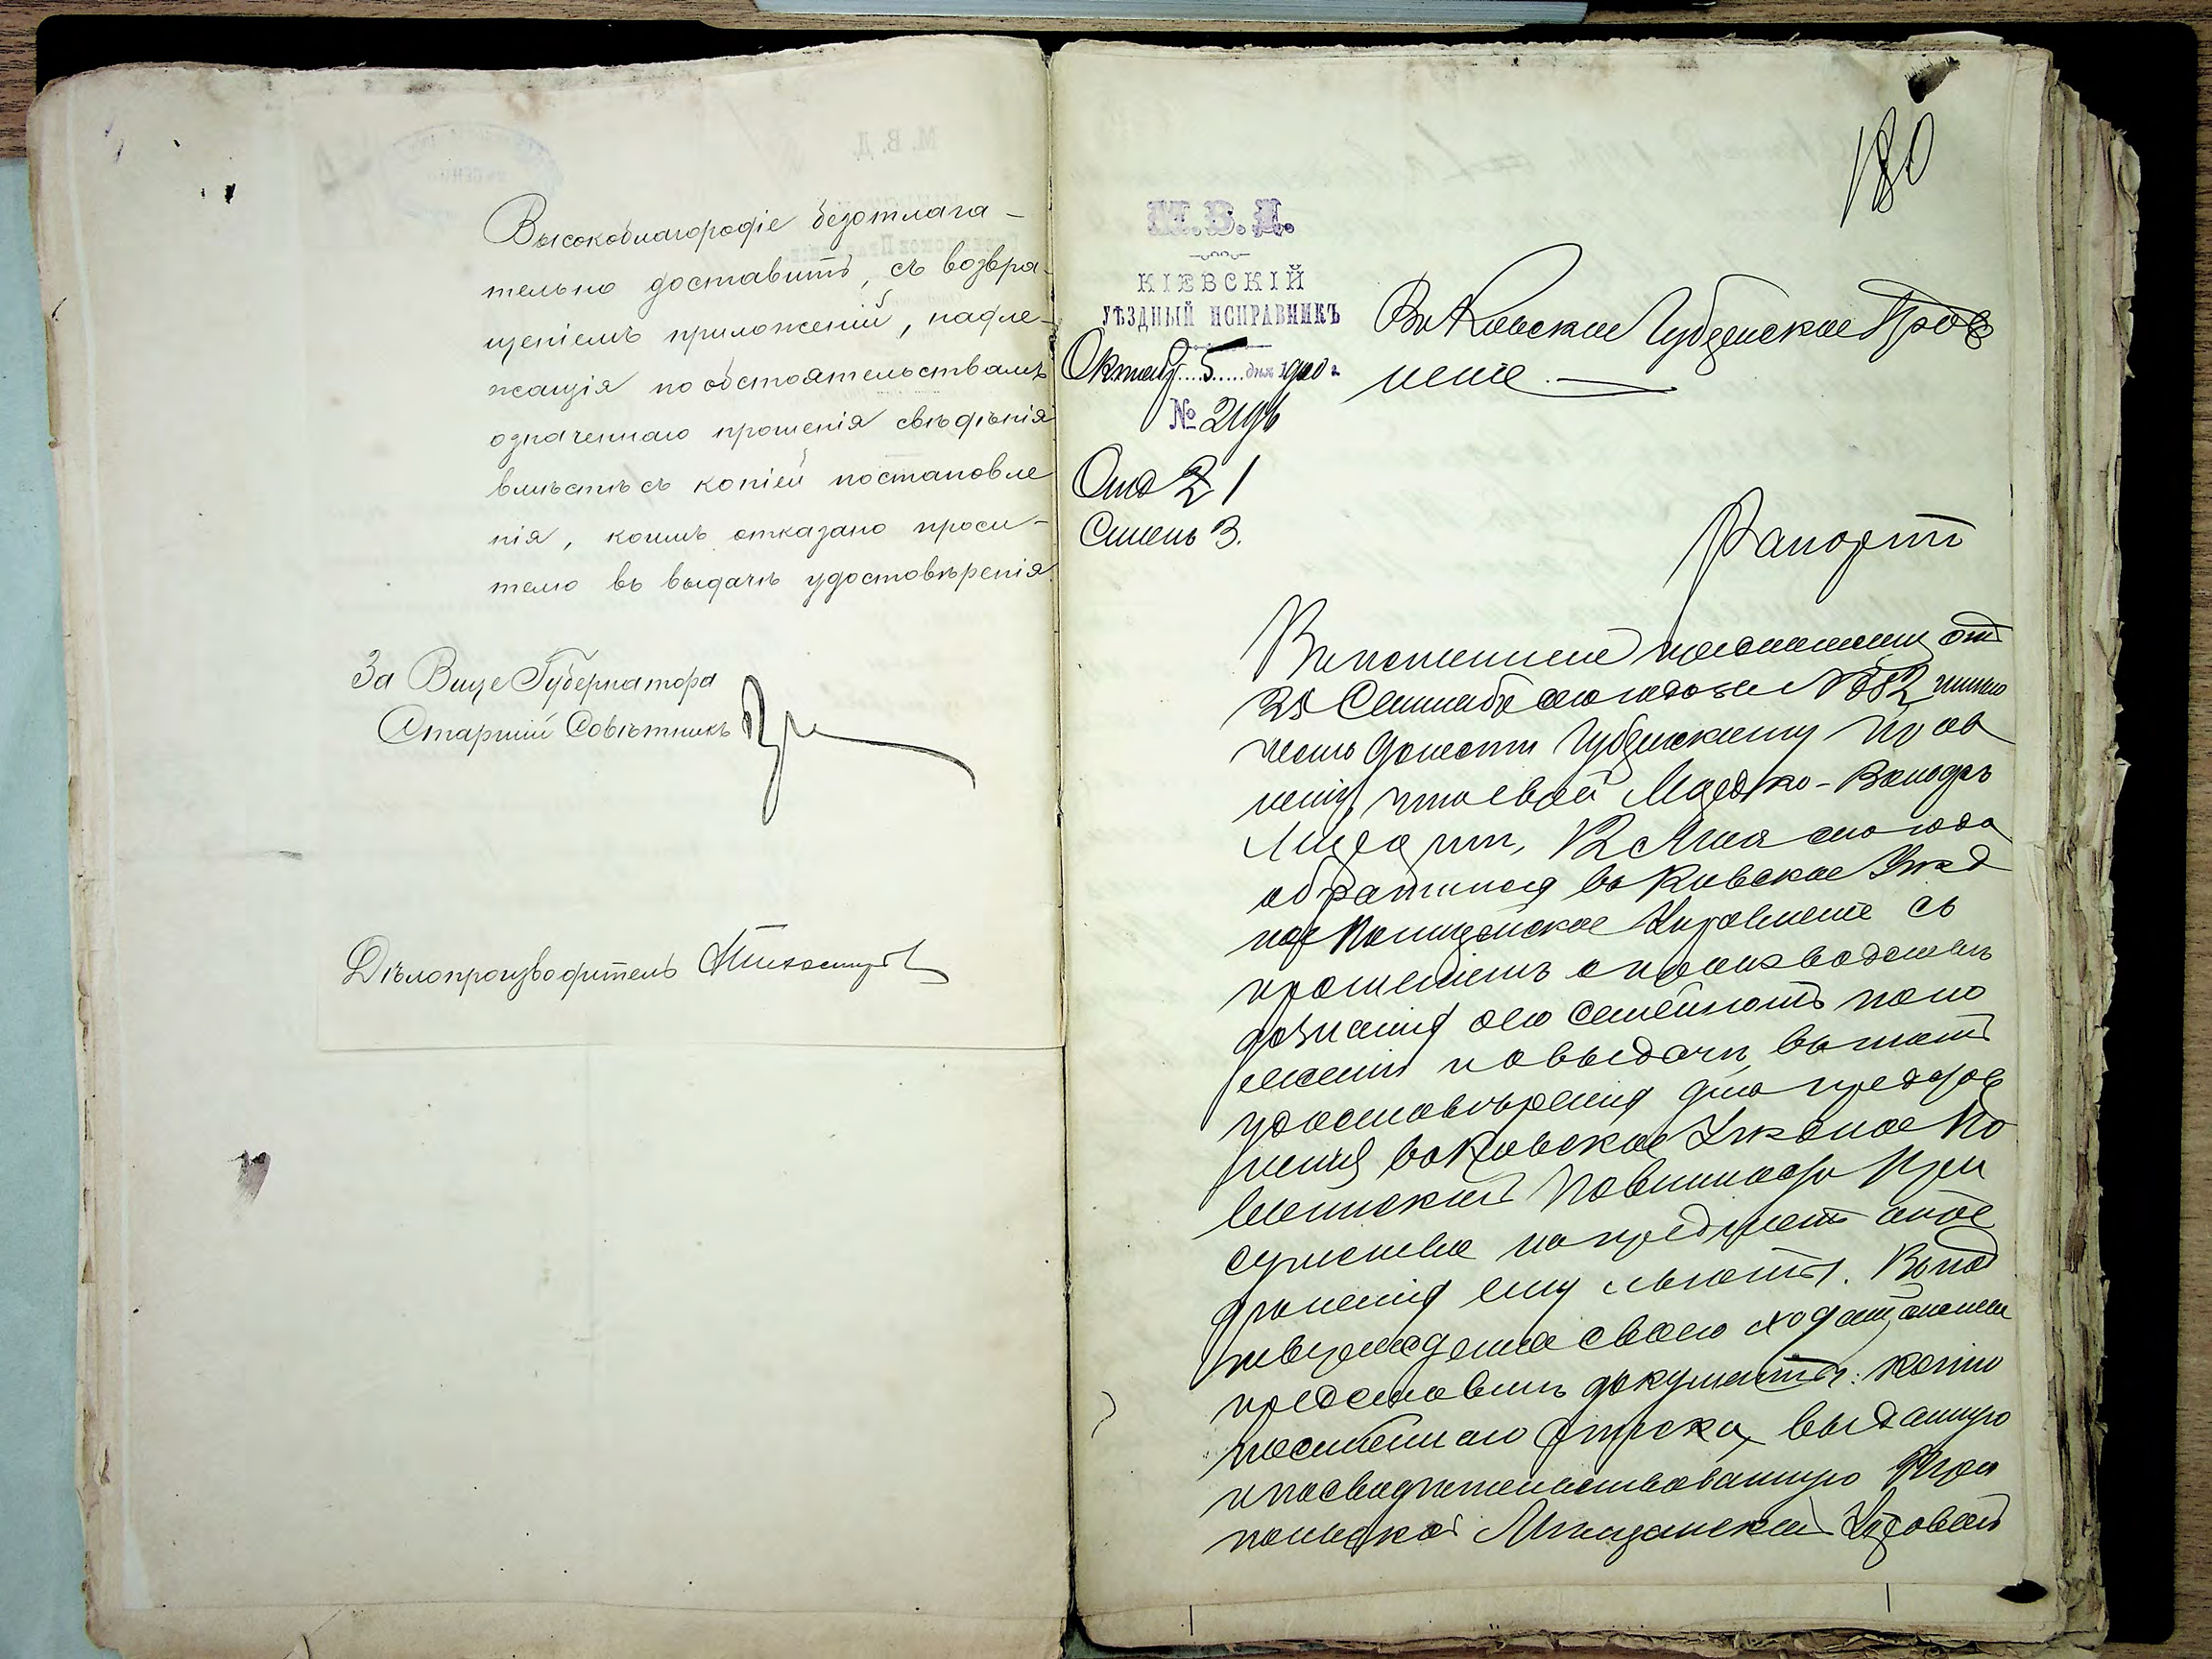 Высокоблагородіе безотлага-
тельно доставить, съ возвра-
щеніемъ приложеній, надле-
жащія по обстоятельствамъ
означеннаго прошенія свѣдѣнія
вмѣстѣ съ копіей постановле
нія, коимъ отказано проси-
телю въ выдачѣ удостовѣренія
За Вице Губернатора
Старшій Совѣтникъ
Дѣлопроизводитель
180
М.В.Д.
КІЕВСКІЙ
УѢЗДНЫЙ ИСПРАВНИКЪ
Октября 5 дня 1900 г.
№
Отд 2 1
Столъ 3.
Въ Кіевское Губернское Прав
леніе
Рапортъ
Во исполненіе предписанія отъ
25 Сентября сего года за № 582, имѣю
честь донести Губернскому Прав
ленію, что Мордко-Володарь
12 Мая сего года
обратился въ Кіевское Уѣзд
ное Полицейское Управленіе съ
прошеніемъ о производствѣ
дознанія о его семейномъ поло
женіи и о выдачѣ въ томъ
удостовѣренія для представ
ленія въ Кіевское Уѣздное по
воинской повинности При
сутствіе на предметъ
ему льготы. Въ под
твержденіе своего ходатайства
представилъ документы: копію
посемейнаго списка, выданную
и посвидѣтельствованную
Мѣщанской Управой